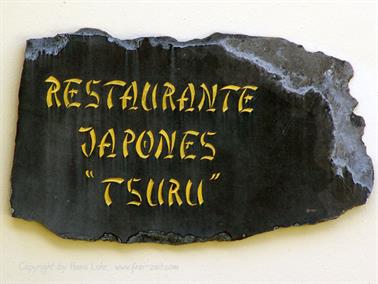 RESTAURANTE
JAPONES
"TSURU"
Copyright by Hans Lohr, www.finer-zeit.com